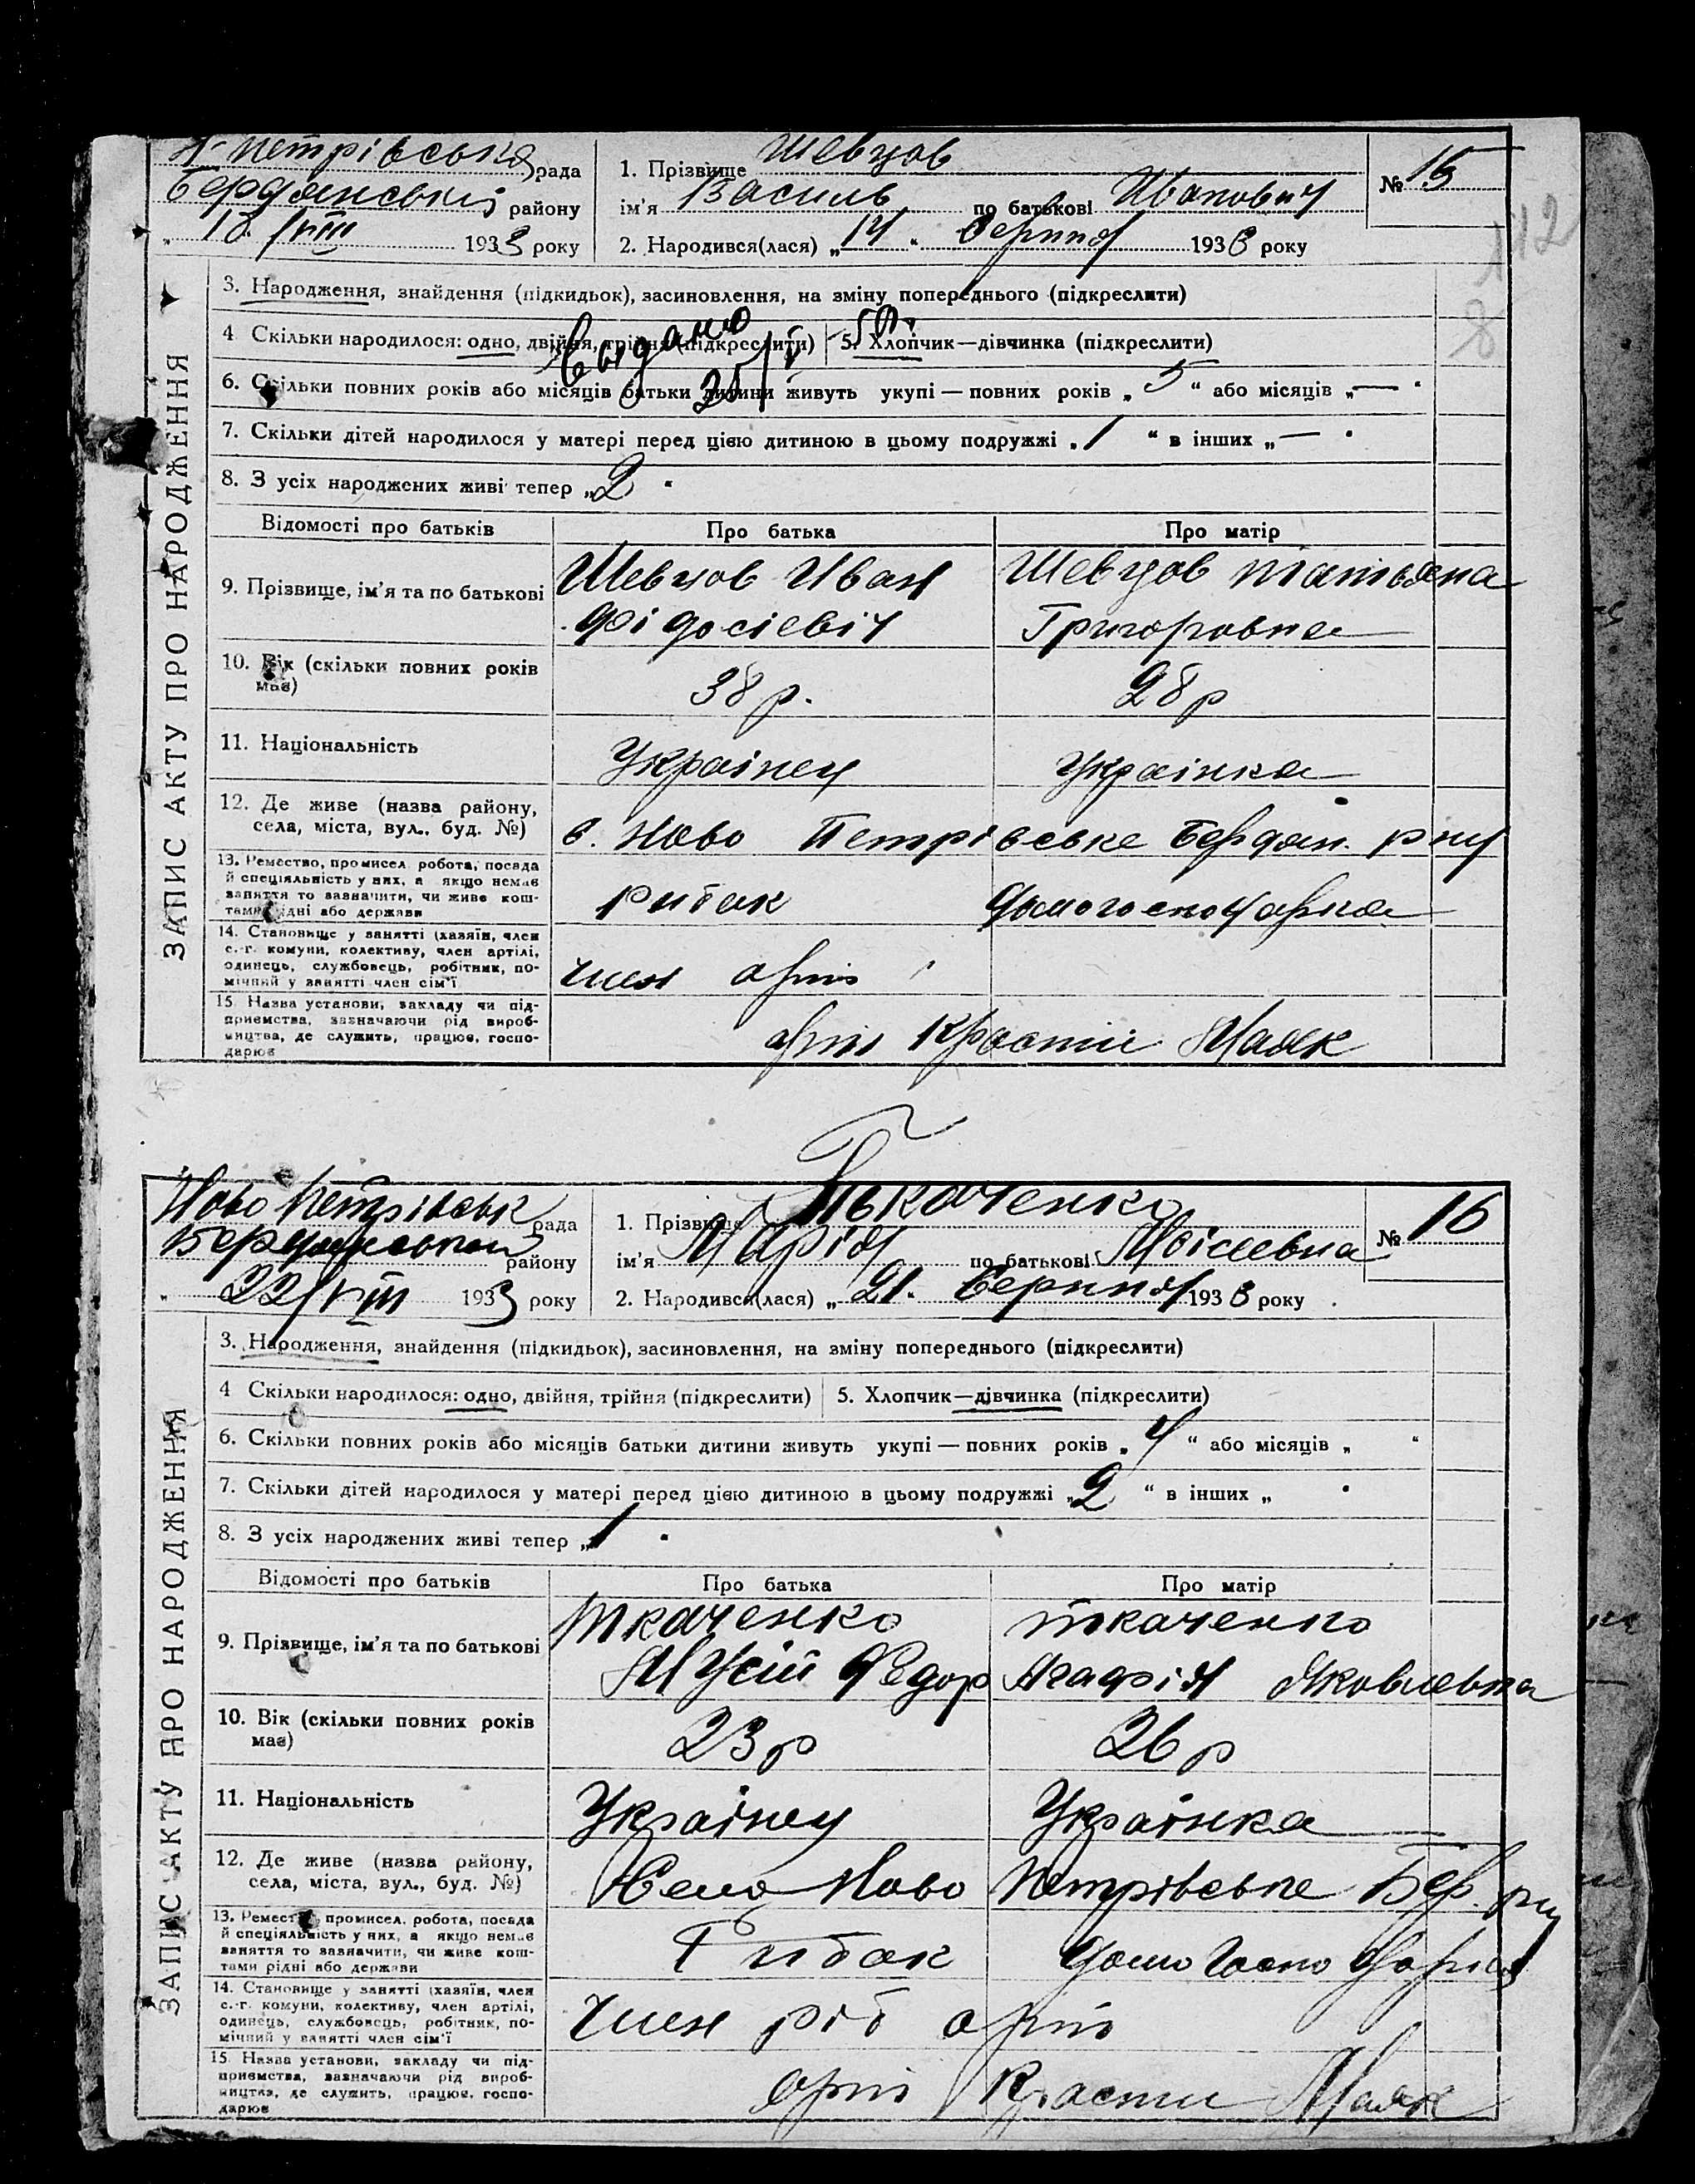 Н-Петрівська рада
Бердянський району
„ 18/VIII 1933 року
1. Прізвище Шевцов
ім'я Василь по батькові Иванович
2. Народився(лася) „14" Серпня 1933 року
№ 15
112
8
ЗАПИС АКТУ ПРО НАРОДЖЕННЯ
3. Народження, знайдення (підкидьок), засиновлення, на зміну попереднього (підкреслити)
4 Скільки народилося: одно, двійня, трійня (підкреслити) 5. Хлопчик—дівчинка (підкреслити)
Выдано
25/V
6. Скільки повних років або місяців батьки дитини живуть укупі — повних років „ 5 " або місяців „ — "
7. Скільки дітей народилося у матері перед цією дитиною в цьому подружжі „ 1 " в інших „ — "
8. З усіх народжених живі тепер „ 2 "
Відомості про батьків Про батька Про матір
9. Прізвище, ім'я та по батькові Шевцов Иван Шевцов Татьяна
Фідосієвіч Григоровна
10. Вік (скільки повних років має) 38 р. 28 р
11. Національність Украінец Украінка
12. Де живе (назва району, села, міста, вул., буд. №) с. Ново Петрівське Бердян. р-ну
13. Ремество, промисел, робота, посада й спеціяльність у них, а якщо немає заняття то зазначити, чи живе коштами рідні або держави Рибак Домогосподарка
14. Становище у занятті (хазяїн, член с.-г. комуни, колективу, член артілі, одинець, службовець, робітник, помічний у занятті член сім'ї член арт
15. Назва установи, закладу чи підприємства, зазначаючи рід виробництва, де служить, працює, господарює арт Маяк
Ново Петрівськ рада
району
„ 22/VIII 1933 року
1. Прізвище Ткаченко
ім'я Марія по батькові Моісеевна
2. Народився(лася) „ 21 " Серпня 1933 року
№ 16
ЗАПИС АКТУ ПРО НАРОДЖЕННЯ
3. Народження, знайдення (підкидьок), засиновлення, на зміну попереднього (підкреслити)
4 Скільки народилося: одно, двійня, трійня (підкреслити) 5. Хлопчик—дівчинка (підкреслити)
6. Скільки повних років або місяців батьки дитини живуть укупі — повних років „ 4 " або місяців „ "
7. Скільки дітей народилося у матері перед цією дитиною в цьому подружжі „ 2 " в інших „ "
8. З усіх народжених живі тепер „ 1 "
Відомості про батьків Про батька Про матір
9. Прізвище, ім'я та по батькові Ткаченко Ткаченко
Мусій Федор Агафія Яковлевна
10. Вік (скільки повних років має) 23 р 26 р
11. Національність Украінец Украінка
12. Де живе (назва району, села, міста, вул., буд. №) Село Ново Петрівське Бер. р-ну
13. Ремество, промисел, робота, посада й спеціяльність у них, а якщо немає заняття то зазначити, чи живе коштами рідні або держави Рибак Домогосподарка
14. Становище у занятті (хазяїн, член с.-г. комуни, колективу, член артілі, одинець, службовець, робітник, помічний у занятті член сім'ї член риб арт
15 Назва установи, закладу чи підприємства, зазначаючи рід виробництва, де служить, працює, господарює арт Маяк